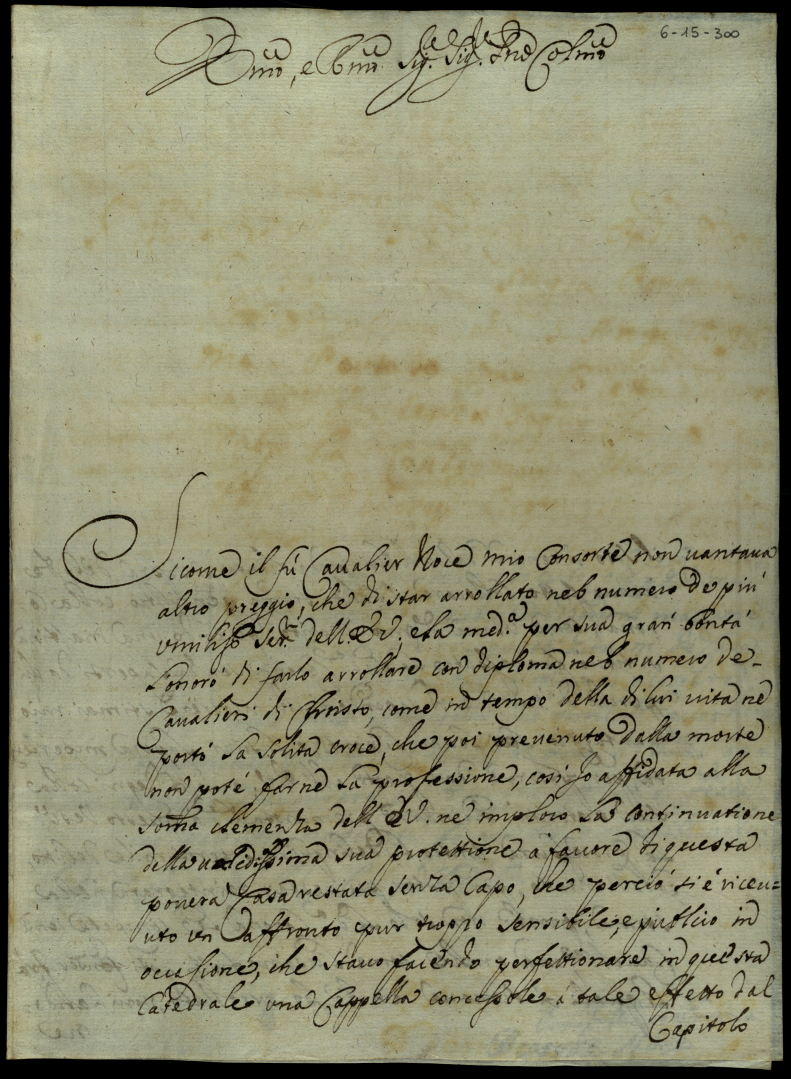 6-15-300
Emo, e Rmo Sig.re Sig.re Pne Colmo
Sicome il fù Cavalier Noce mio Consorte non vantaua
altro preggio, che di star arrollato nel numero de più
vmiliss.i Ser.i dell'E.V., e la med.a per sua gran bontà
l'onorò di farlo arrollare con diploma nel numero de
Cavalieri di Christo, come in tempo della di lui vita ne
portò la solita croce, che poi preuenuto dalla morte
non poté farne la professione, così Io affidata alla
soma clemenza dell'E.V. ne imploro la continuatione
della sua protettione à fauore di questa
pouera Casa restata senza Capo, che perciò si è riceu=
uto un affronto pur troppo sensibile, e publico in
occasione, che stauo facendo perfettionare in questa
Catedrale una Cappella concessole à tale effetto dal
Capitolo